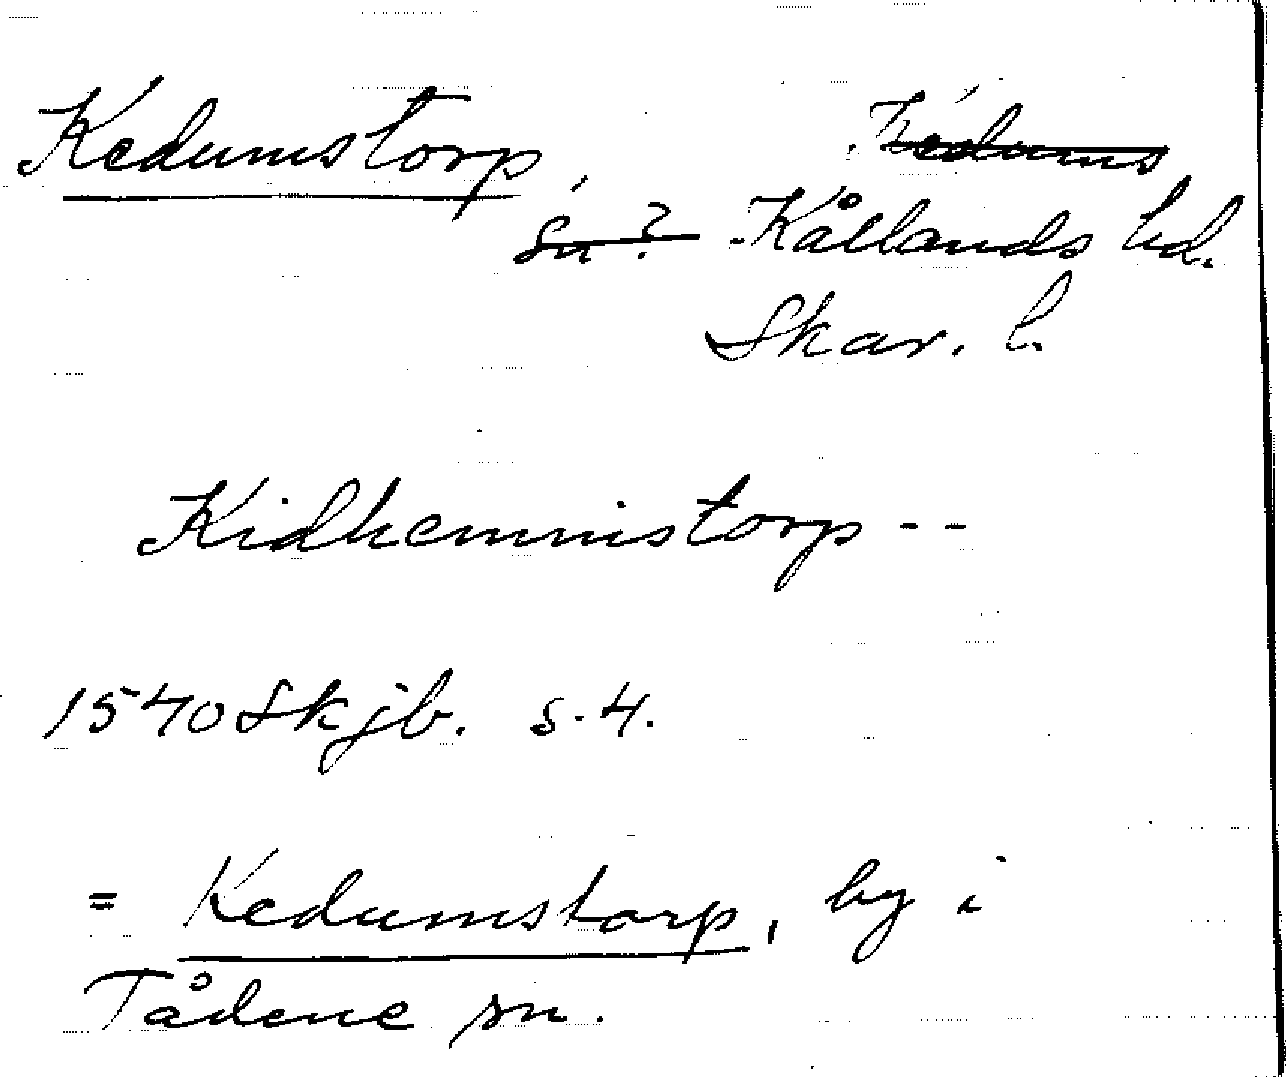 Kedumstorp, Kedums
sn? Kållands hd.
Skar. l.
Kidhemmistorp - -
1540 Skjb. s. 4.
= Kedumstorp, by i
Tådene sn.